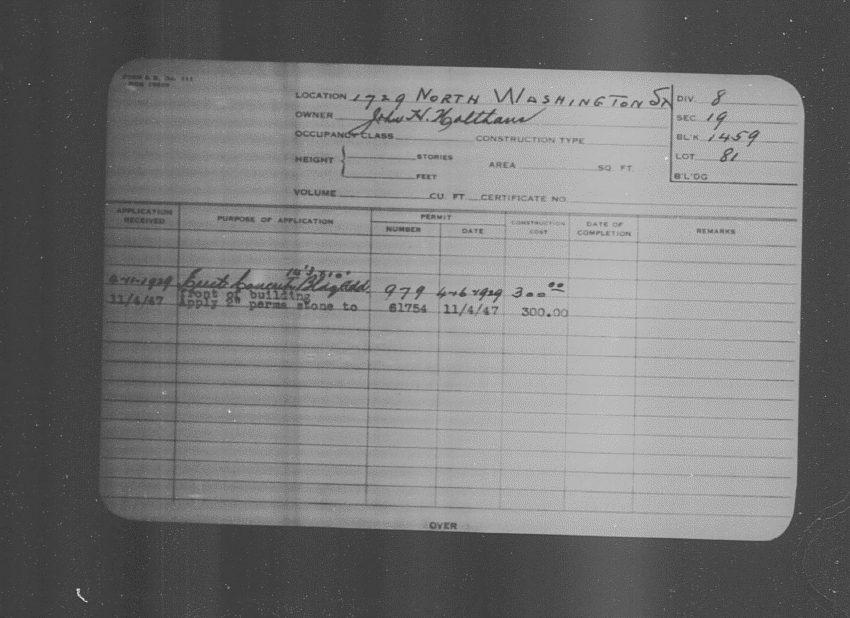 FORM B. B. No. 111
LOCATION 1729 NORTH WASHINGTON ST DIV. 8
OWNER John H. Holthaus SEC. 19
OCCUPANCY CLASS CONSTRUCTION TYPE BL'K. 1459
HEIGHT STORIES AREA SQ. FT. LOT 81
FEET B'L'DG
VOLUME CU. FT. CERTIFICATE NO.
APPLICATION RECEIVED PURPOSE OF APPLICATION PERMIT NUMBER DATE CONSTRUCTION COST DATE OF COMPLETION REMARKS
4-11-1929 Erect Concrete Bldg Add. 979 1929 300.00
front of building
11/4/47 Apply 2" perma stone to 61754 11/4/47 300.00
OVER